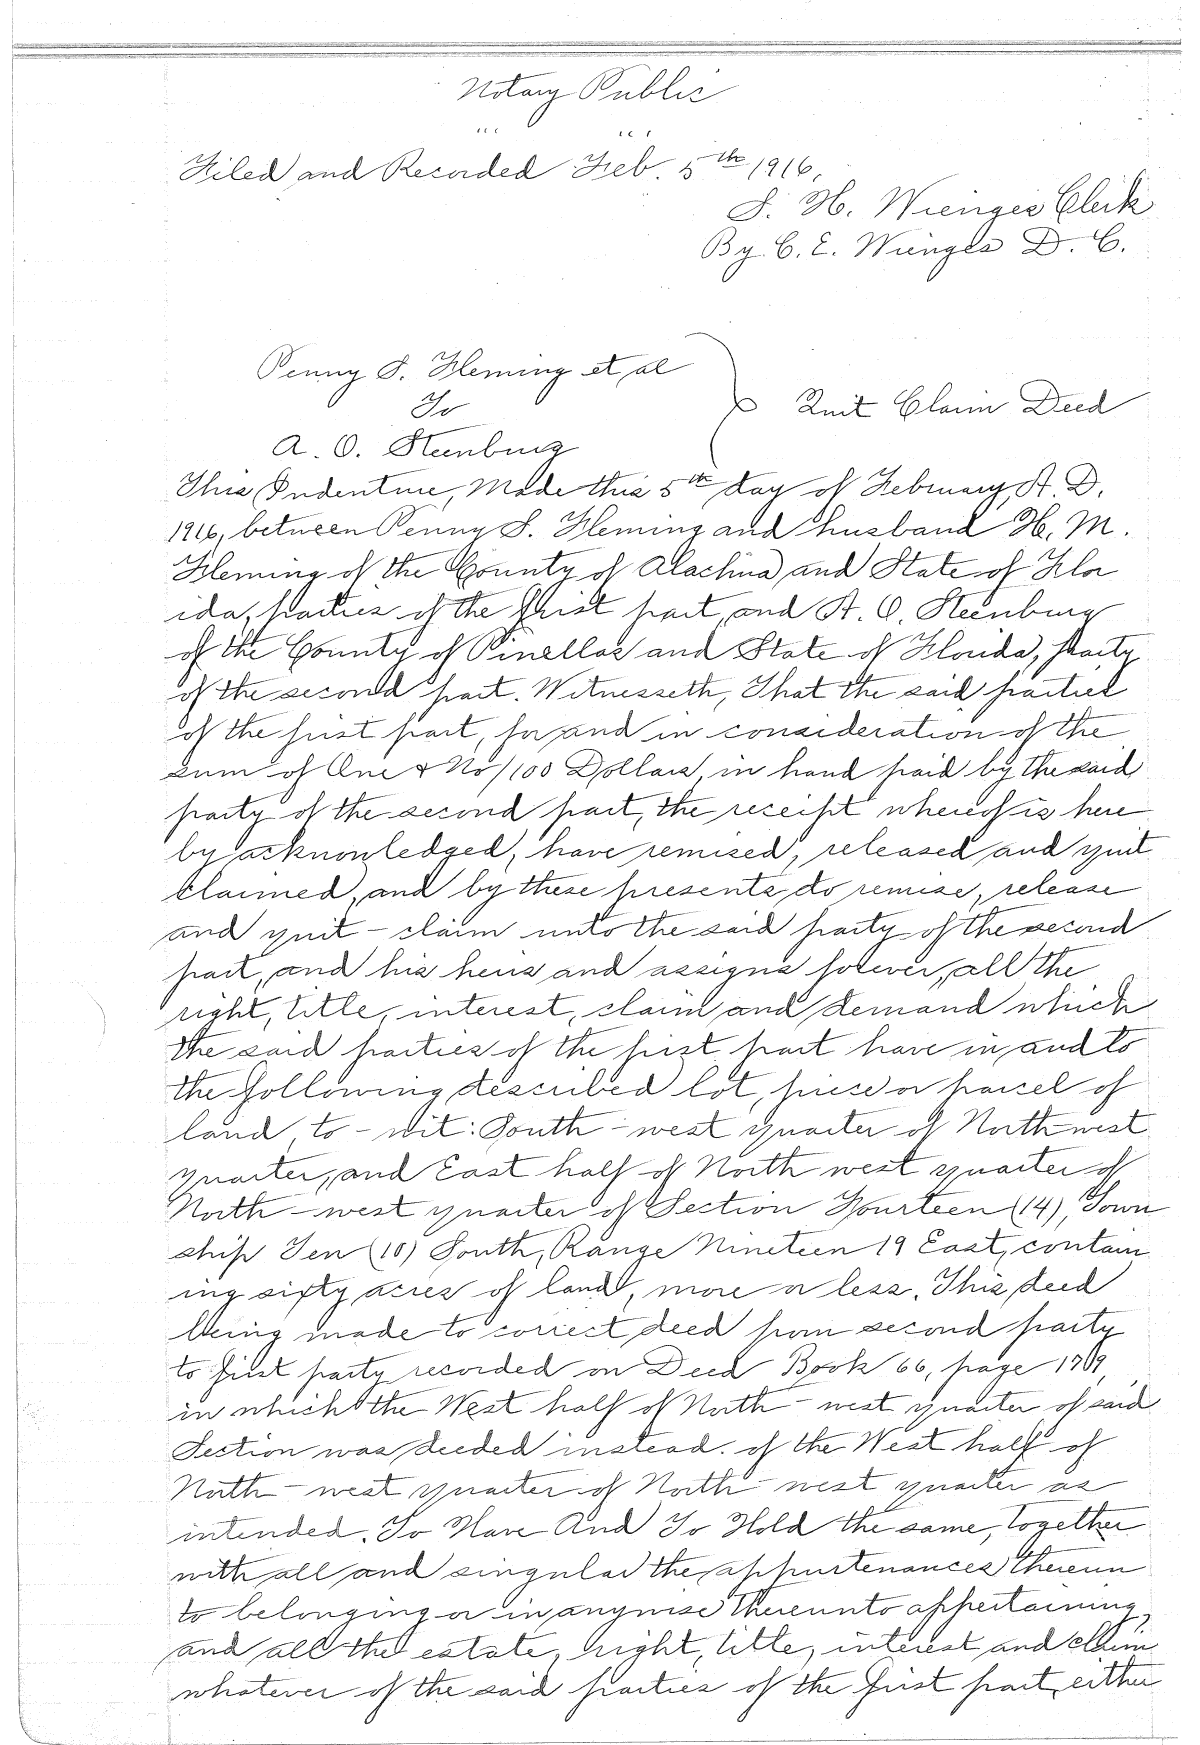 Notary Public
"" ""
Filed and Recorded Feb. 5th 1916,
S. H. Wienges Clerk
By C. E. Wienges D. C.
Penny S. Fleming et al
To
Quit Claim Deed
A. O. Steenburg
This Indenture, Made this 5th day of February, A. D.
1916, between Penny S. Fleming and husband H. M.
Fleming of the County of Alachua and State of Flor
ida, parties of the first part, and A. O. Steenburg
of the County of Pinellas and State of Florida, party
of the second part. Witnesseth, That the said parties
of the first part, for and in consideration of the
sum of One & No/100 Dollars, in hand paid by the said
party of the second part, the receipt whereof is here
by acknowledged, have remised, released and quit
claimed, and by these presents do remise, release
and quit - claim unto the said party of the second
part, and his heirs and assigns forever, all the
right, title, interest, claim and demand which
the said parties of the first part have in and to
the following described lot, piece or parcel of
land, to - wit: South - west quarter of North west
quarter, and East half of North west quarter of
North - west quarter of Section Fourteen (14), Town
ship Ten (10) South, Range Nineteen 19 East, contain
ing sixty acres of land, more or less. This deed
being made to correct deed from second party
to first party recorded on Deed Book 66, page
in which the West half of North - west quarter of said
Section was deeded instead. of the West half of
North - west quarter of North - west quarter as
intended. To Have And To Hold the same, together
with all and singular the appurtenances thereun
to belonging or in anywise thereunto appertaining,
and all the estate, right, title, interest and claim
whatever of the said parties of the first part, either